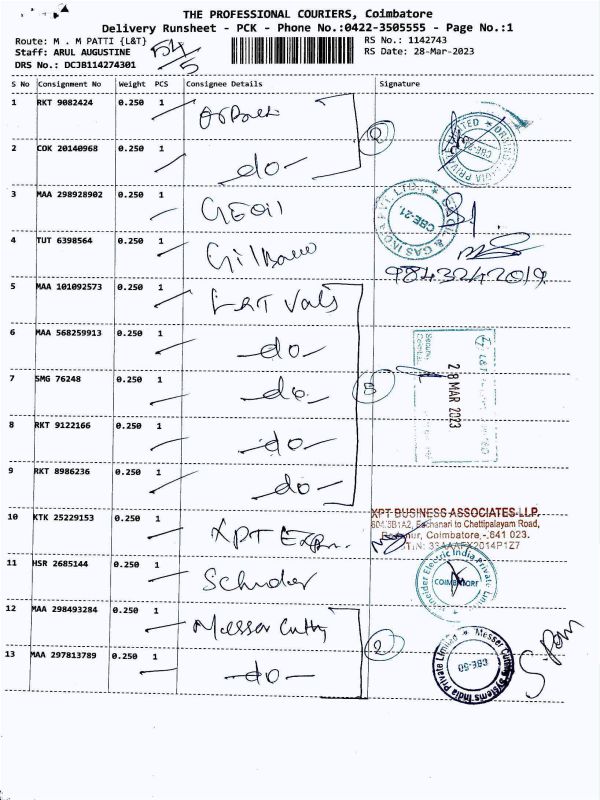 THE PROFESSIONAL COURIERS, Coimbatore
Delivery Runsheet - PCK - Phone No.:0422-3505555 - Page No.:1
Route: M . M PATTI {L&T}
RS No.: 1142743
Staff: ARUL AUGUSTINE
RS Date: 28-Mar-2023
DRS No.: DCJB114274301
54/5
S No Consignment No Weight PCS Consignee Details Signature
1 RKT 9082424 0.250 1
2 COK 20140968 0.250 1 -do-
2
3 MAA 298928902 0.250 1 GEOil
& GAS INDIA PVT. LTD. CBE-21.
4 TUT 6398564 0.250 1
9843242019
5 MAA 101092573 0.250 1 L&T Vals
6 MAA 568259913 0.250 1 -do-
7 SMG 76248 0.250 1 -do-
5
28 MAR 2023
8 RKT 9122166 0.250 1 -do-
9 RKT 8986236 0.250 1 -do-
XPT BUSINESS ASSOCIATES LLP.
Eachanari to Chettipalayam Road,
Coimbatore,-641 023.
10 KTK 25229153 0.250 1 XPT
11 HSR 2685144 0.250 1
Schneider Electric India Private Limited
COIMBATORE
12 MAA 298493284 0.250 1 Messer Cutting
2
Messer Cutting Systems India Private Limited
CBE-50
13 MAA 297813789 0.250 1 -do-